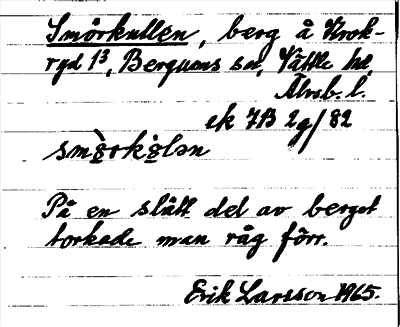 Smörkullen, berg å Krok-
ryd 1³, Bergums sn, Vättle hd,
Älvsb. l.
ek 7B 2g/82
smö̀rkùlən
På en slätt del av berget
torkade man råg förr.
Erik Larsson 1965.